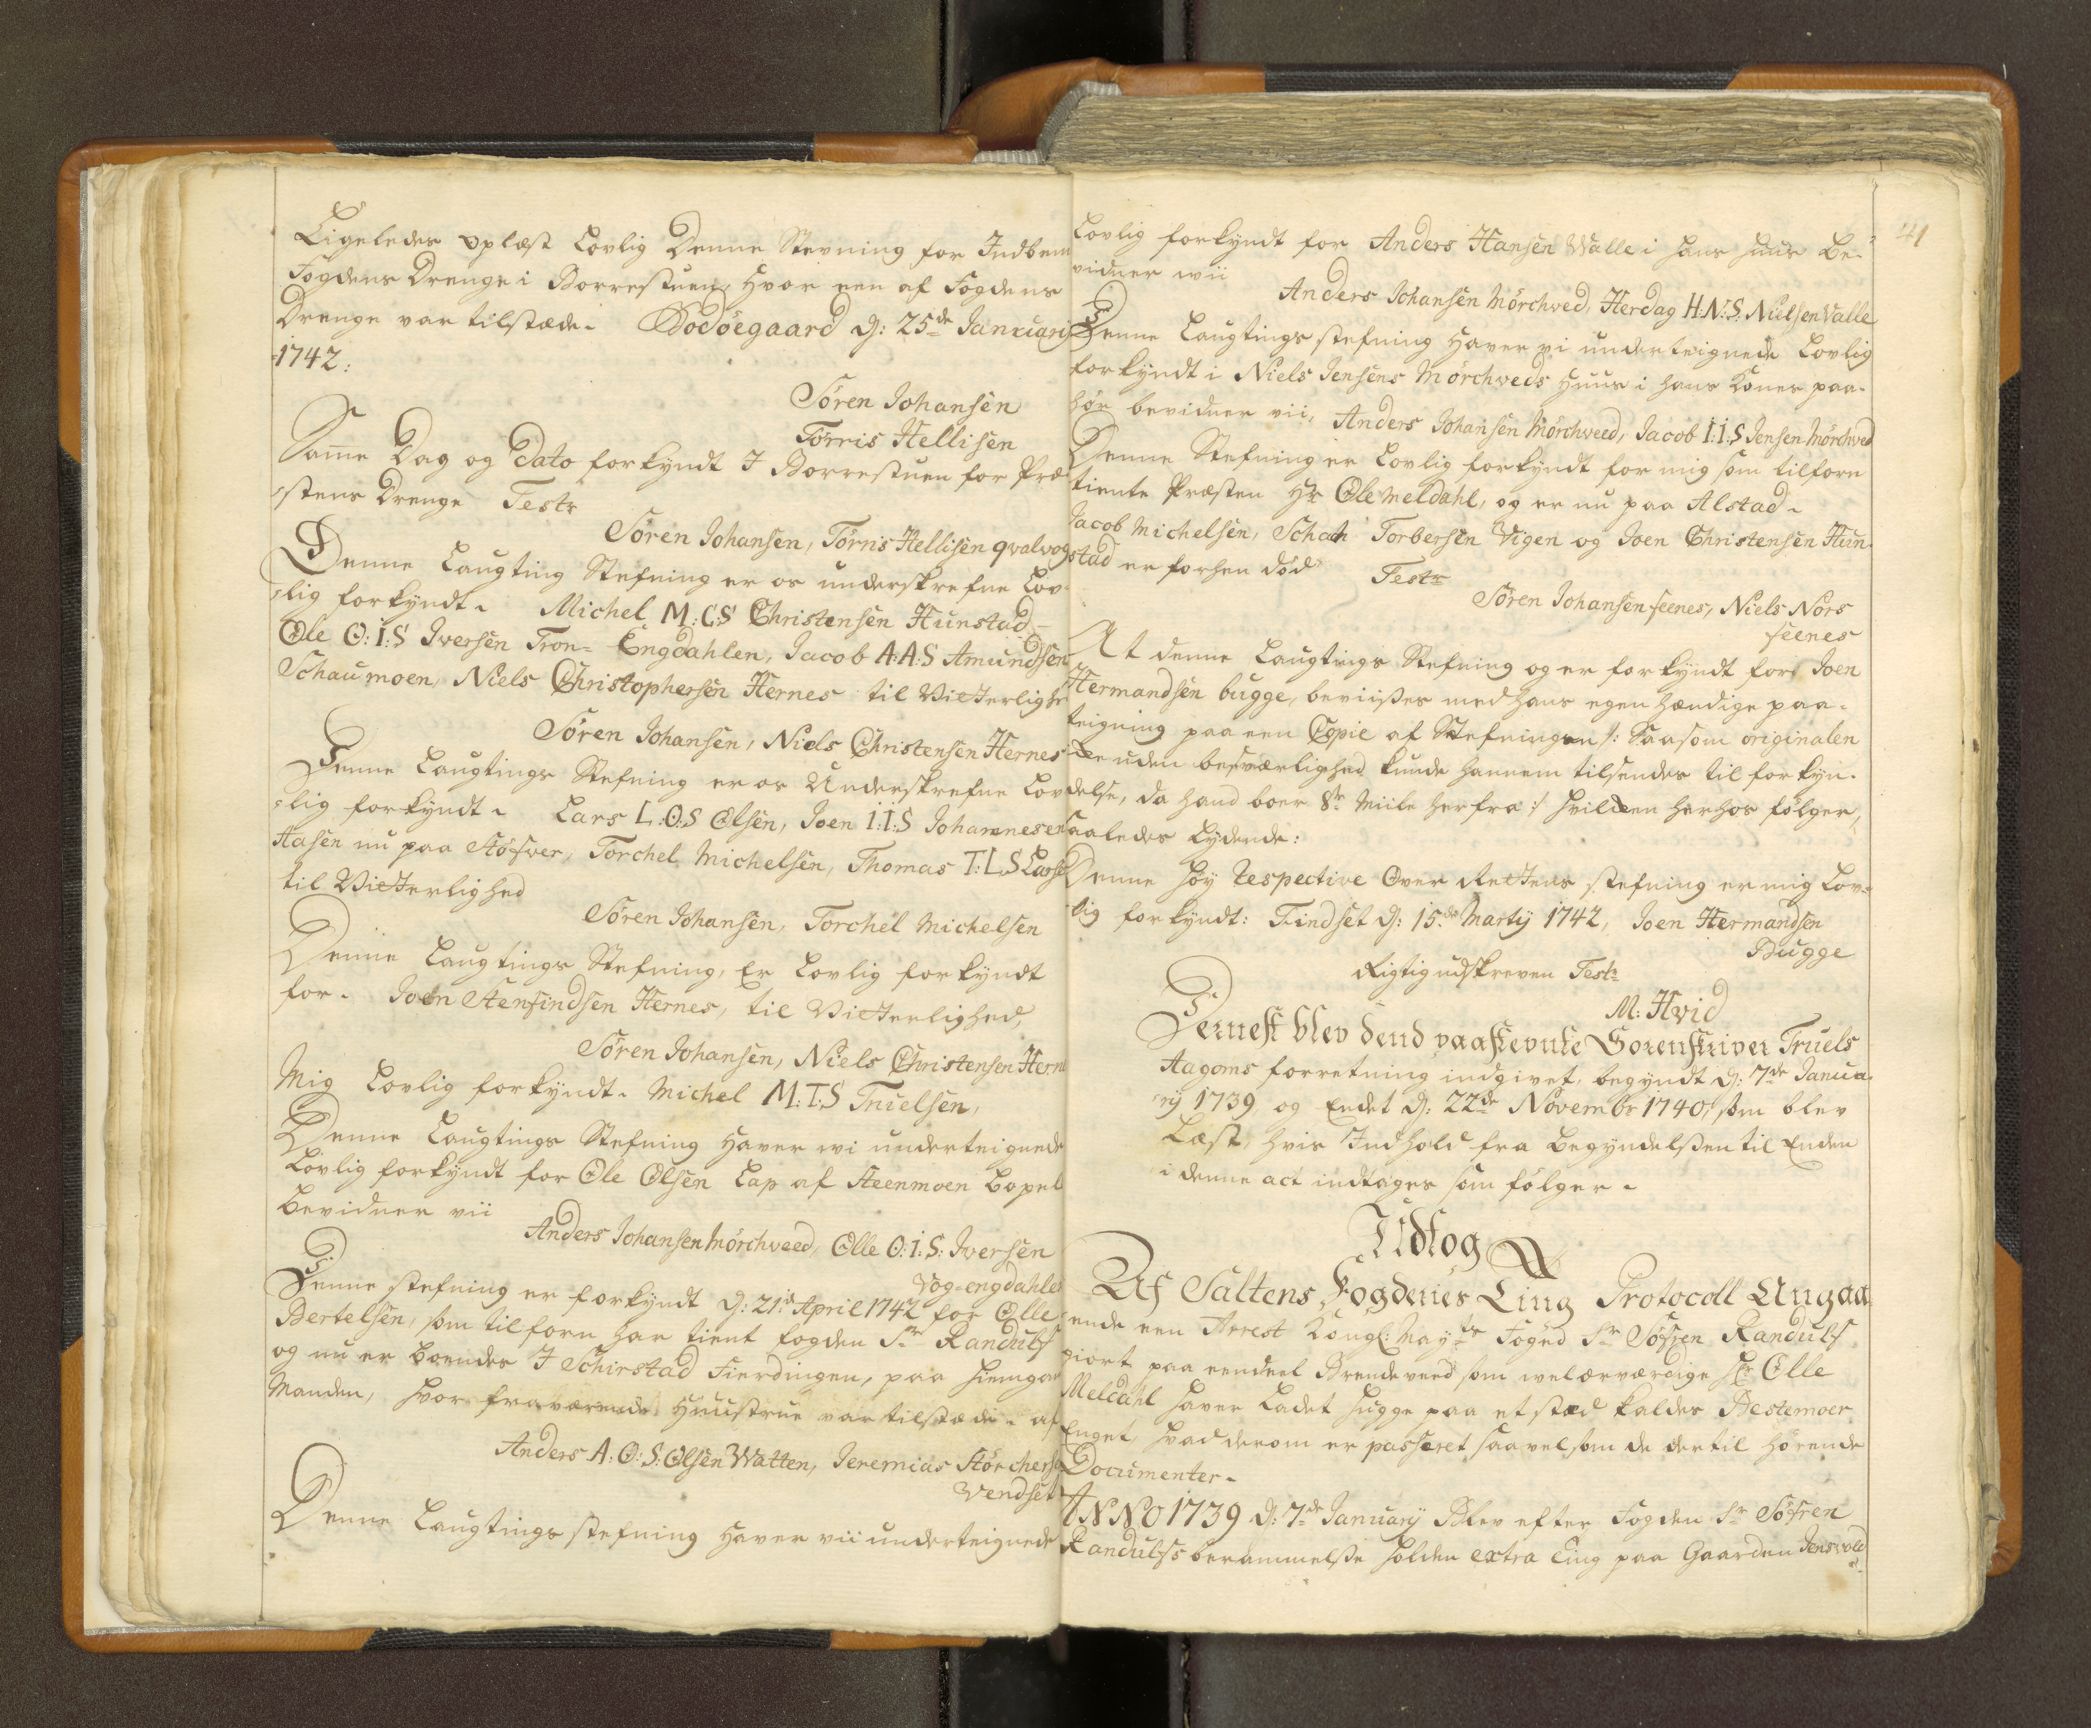 Ligeledes oplæst Lovlig Denne Stevning for Indbem
Fogdens Drenge i Borrestuen, hvor een af Fogdens
Drenge var tilstæde. Bodöegaard d: 25de Januarij
1742:
Sören Johansen
Törris Hellisen
Samme Dag og Dato forkyndt I Borrestuen for Præ
stens Drenge Testr
Sören Johansen, Törris Hellisen qvalvog
Denne Laugting Stefning er os underskrefne Lov-
lig forkyndt. Michel M:C:S Christensen Hunstad
Ole O:I:S Iversen Tron= Engdahlen, Jacob A:A:S Amundsen
Schaumoen, Niels Christophersen Hernes til Vitterlighe
Sören Johansen, Niels Christensen Hernes
Denne Laugtings Stefning er os Underskrefne Lov
lig forkyndt. Lars L:O:S Olsen, Joen I:I:S Johannesen
Aasen nu paa Stöfver, Torchel Michelsen, Thomas T:L:S Larse
til Vitterlighed
Sören Johansen, Torchel Michelsen
Denne Laugtings Stefning, Er Lovlig forkyndt
for. Joen Stenfindsen Hernes, til Vitterlighed,
Sören Johansen, Niels Christensen Hern
Mig Lovlig forkyndt. Michel M:T:S Truelsen,
Denne Laugtings Stefning haver wi underteignede
Lovlig forkyndt for Ole Olsen Lap af Steenmoen Bopel
bevidner vii
Anders Johansen Mörchveed, Olle O:I:S: Iversen
Vog=engdahle
Denne stefning er forkyndt d: 21de April 1742 for Olle
Bertelsen, som tilforn har tient fogden Sr Randulf
og nu er boendes I Schirstad Fierdingen, paa hiemga
Manden, hvor fraværende Huustrue var tilstæde. af
Anders A:O:S: Olsen Watten, Jeremias Störchersen
Vendset
Denne Laugtings stefning haver vii underteignede
41
Lovlig forkyndt for Anders Hansen Walle i hans huus be-
vidner wii
Anders Johansen Mörchved, Herdag H:N:S: Nielsen Valle
Denne Laugtings stefning haver vi underteignede Lovlig
forkyndt i Niels Jensens Mörchveds Huus i hans Kones paa-
hör bevidner vii, Anders Johansen Mörchveed, Jacob I:I:S Jensen Mörchved
Denne Stefning er Lovlig forkyndt for mig som tilforn
tiente Præsten Hr Ole Meldahl, og er nu paa Alstad.
Jacob Michelsen, Schah Torbersen Vigen og Joen Christensen Hun-
stad er forhen död Testr
Sören Johansen seenes, Niels Nors
seenes
At denne Laugtings Stefning og er forkyndt for Joen
Hermandsen bugge, beviises med hans egen hændige paa-
teigning paa een Copie af Stefningen /: Saasom originalen
ee uden besværlighed kunde hannem tilsendes til forkyn-
delse, da hand boer 8te Miile herfra :/ hvilken herhos fölger,
saaledes Lydende:
Denne Höy Respective Over Rettens stefning er mig Lov-
lig forkyndt: Findset d: 15de Martij 1742, Joen Hermandsen
Bugge
Rigtig udskreven Testr
M: Hvid
Dernest blev dend paastevnte Sorenskriver Truels
Aagoms forretning indgivet, begyndt d: 7de Janua-
rij 1739 og Endet d: 22de Novembr 1740, som blev
Læst, hvis Indhold fra begyndelsen til Enden
i denne act indtages som fölger.
Udtog
Af Saltens Fogderies Ting Protocoll Angaa
ende een Arrest Kongl: May:ts Foged Sr Söfren Randulf
giort paa eendeel Brendeveed som welærværdige Hr Olle
Meldahl haver Ladet hugge paa et stæd kaldes Bestemoer
Enget, hvad derom er passeret saavelsom de dertil hörende
Documenter.
ANNO 1739 d: 7de January Blev efter Fogden Sr Söfren
Randulfs berammelse holden extra Ting paa Gaarden Jensvold